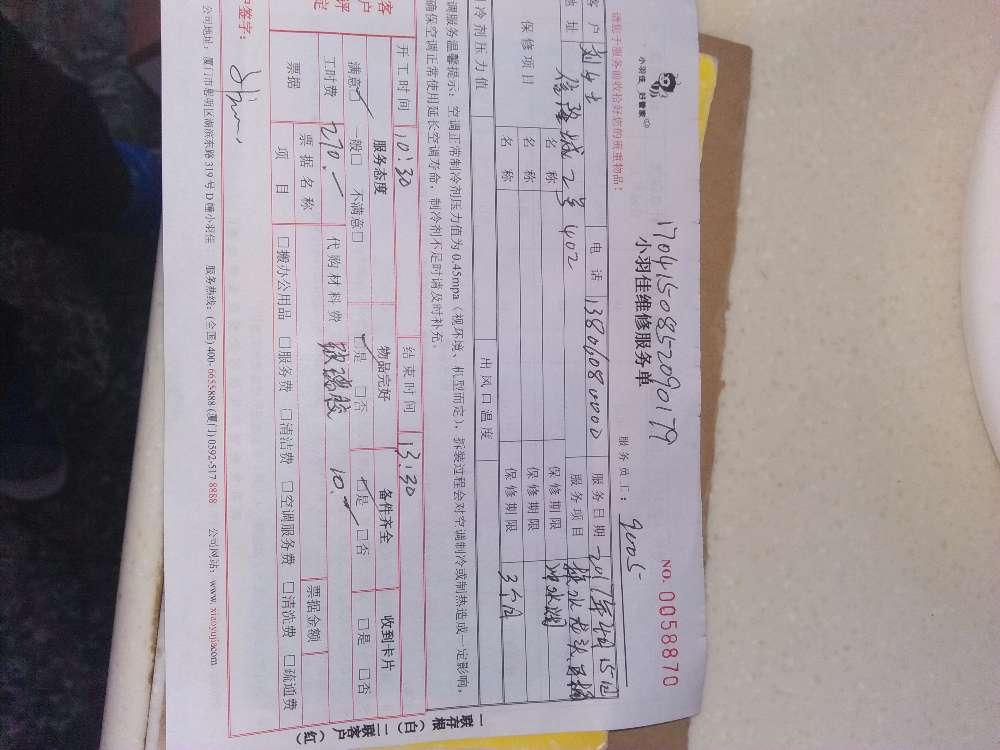 小羽佳 好管家
1704150852090179
小羽佳维修服务单
NO. 0058870
请您于服务前收拾好您的贵重物品!
服务员工: 9005
客户 刘女士 电话 13806080000 服务日期 2017年4月15日
地址 信隆城2号402 服务项目 换水龙头、马桶
冲水阀
保修项目 名称 保修期限
名称 保修期限
名称 保修期限 3个月
冷剂压力值 出风口温度
调服务温馨提示: 空调正常制冷剂压力值为 0.45mpa (视环境、机型而定), 拆装过程会对空调制冷或制热造成一定影响,
确保空调正常使用延长空调寿命, 制冷剂不足时请及时补充。
开工时间 10:30 结束时间 13:30
客户评定 服务态度 物品完好 备件齐全 收到卡片
满意□ 一般□ 不满意□ □是 □否 □是 □否 □是 □否
工时费 270.- 代购材料费 玻璃胶 10.-
票据 票据名称 票据金额
项目 □搬办公用品 □服务费 □清洁费 □空调服务费 □清洗费 □疏通费
户签字:
公司地址: 厦门市思明区湖滨东路 319 号 D 幢小羽佳 服务热线: (全国) 400-6655888 (厦门) 0592-517 8888 公司网站: www.xiaoyujia.com
一联存根(白) 二联客户(红)